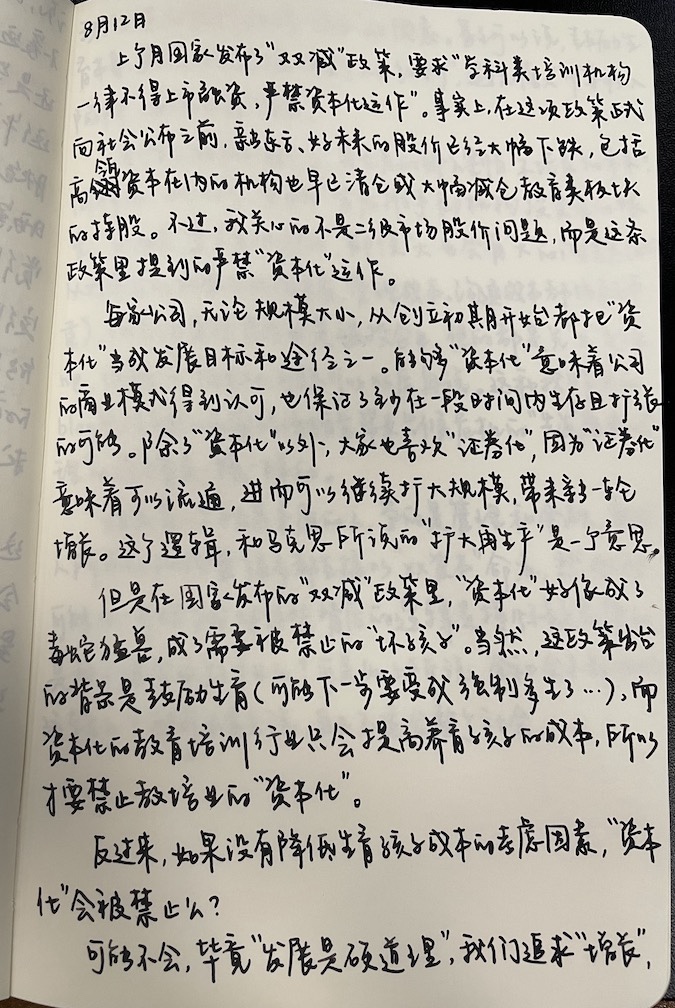 8月12日
上个月国家发布了"双减"政策，要求"学科类培训机构
一律不得上市融资，严禁资本化运作"。事实上，在这项政策正式
向社会公布之前，新东方、好未来的股价已经大幅下跌，包括
高瓴资本在内的机构也早已清仓或大幅减仓教育类板块
的持股。不过，我关心的不是二级市场股价问题，而是这条
政策里提到的严禁"资本化"运作。
每家公司，无论规模大小，从创立初期开始都把"资
本化"当成发展目标和途径之一。能够"资本化"意味着公司
的商业模式得到认可，也保证了至少在一段时间内生存且扩张
的可能。除了"资本化"以外，大家也喜欢"证券化"，因为"证券化"
意味着可以流通，进而可以继续扩大规模，带来新一轮
增长。这个逻辑，和马克思所说的"扩大再生产"是一个意思。
但是在国家发布的"双减"政策里，"资本化"好像成了
毒蛇猛兽，成了需要被禁止的"坏孩子"。当然，这政策出台
的背景是鼓励生育（可能下一步要变成强制多生了…），而
资本化的教育培训行业只会提高养育孩子的成本，所以
才要禁止教培业的"资本化"。
反过来，如果没有降低生育孩子成本的考虑因素，"资本
化"会被禁止么？
可能不会，毕竟"发展是硬道理"，我们追求"增长"，